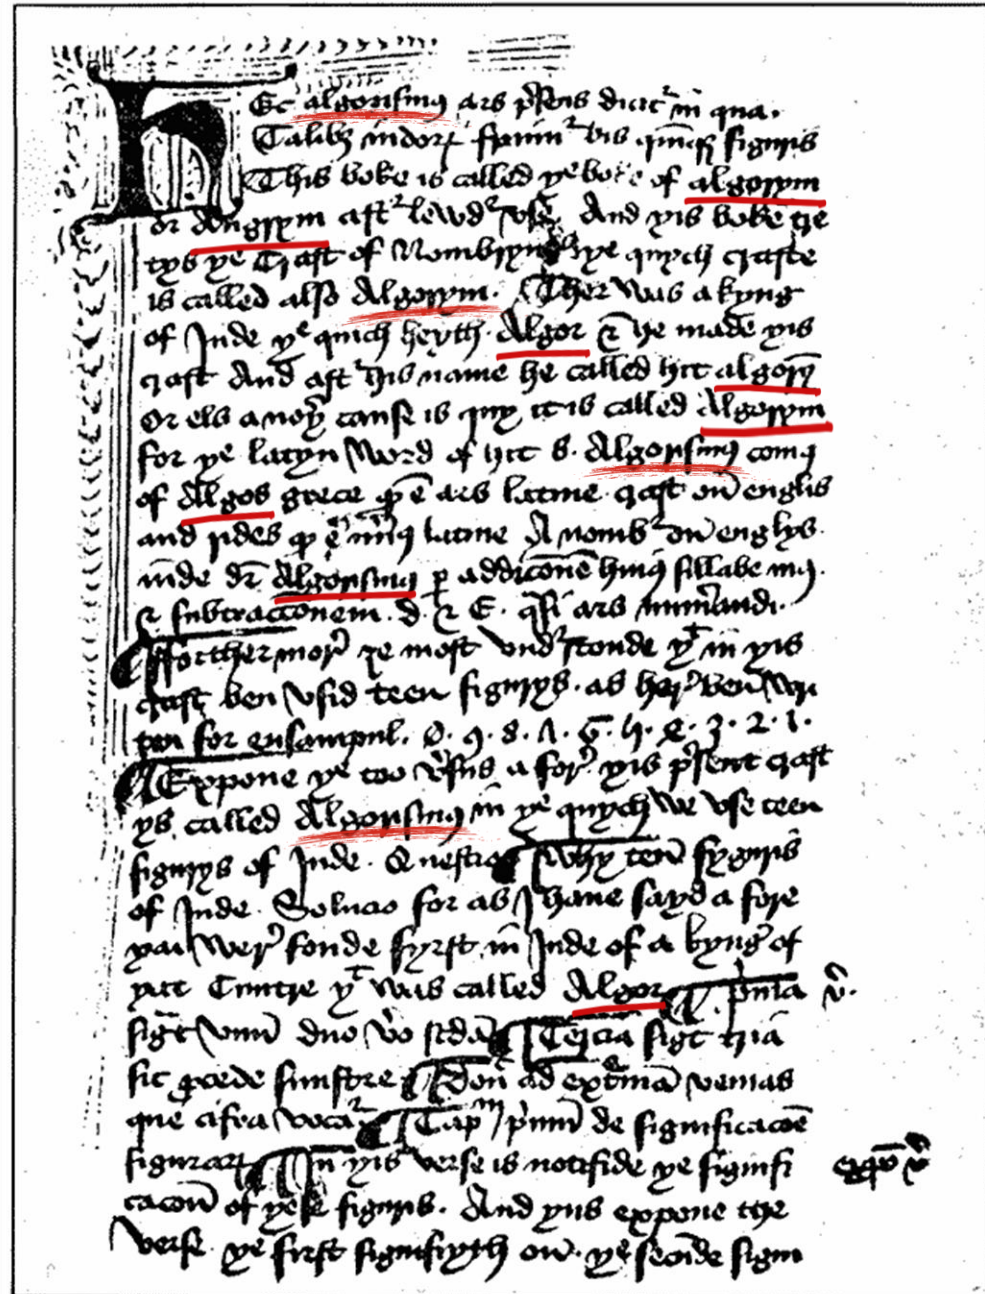 HEc algorismꝰ ars p̄sens dicit̉ in qua.
Talibꝫ indoꝝ fruim̉ bis quinqꝫ figuris
This boke is called þe boke of algorym
or Augrym aft̉ lewd̉ vse. And þis boke tre
tys þe Craft of Nombryng þe quych crafte
is called also Algorym. Ther was a kyng
of Inde þe quich heyth Algor & he made þis
craft And aft̉ his name he called hit algory̅
Or els anoþ̉ cause is quy it is called Algorym
for þe latyn word of hit s. Algorismꝰ comꝭ
of Algos grece q̄ ē ars latine craft on̄ englis
and rides q̄ ē nu̅ꝰ latine A nomb̉ on̄ englys.
inde dr̄ Algorismꝰ ꝑ addicōnē huiꝰ sillabe mꝰ.
& subtraccōnem. d & E. q̄si ars num̉andi.
¶ fforthermor̉ ȝe most vnd̉stonde þt in þis
craft ben vsid teen figurys. as her̉ ben̄ wri
ten for ensampul. 0. 9. 8. 7. 6. 5. 4. 3. 2. 1.
¶ Expone þe too v̉sus a for̉ þis p̉sent craft
ys called Algorismꝰ in þe quych we vse teen
figurys of Inde. Questio ¶ why ten̄ fyguris
of Inde. Solucio for as I haue sayd a fore
þai wer̉ fonde fyrst in Inde of a kyng̉ of
þat Cuntre þt was called Algor ¶ p̉ma v̉.
sigt̄ vnum̄ duo v̉o scd̄a ¶ Tercia sigt̄ tria
sic ꝓcede sinistre ¶ Don̄ ad ext̉mā venias
que cifra vocat̉ ¶ Capm p̉mum̄ de significacōe
figurarꝝ ¶ In þis verse is notifide þe signifi expō v̉
cacōn̄ of þese figuris. And þus expone the
verse. þe first signifiyth on̄. þe secōde signi